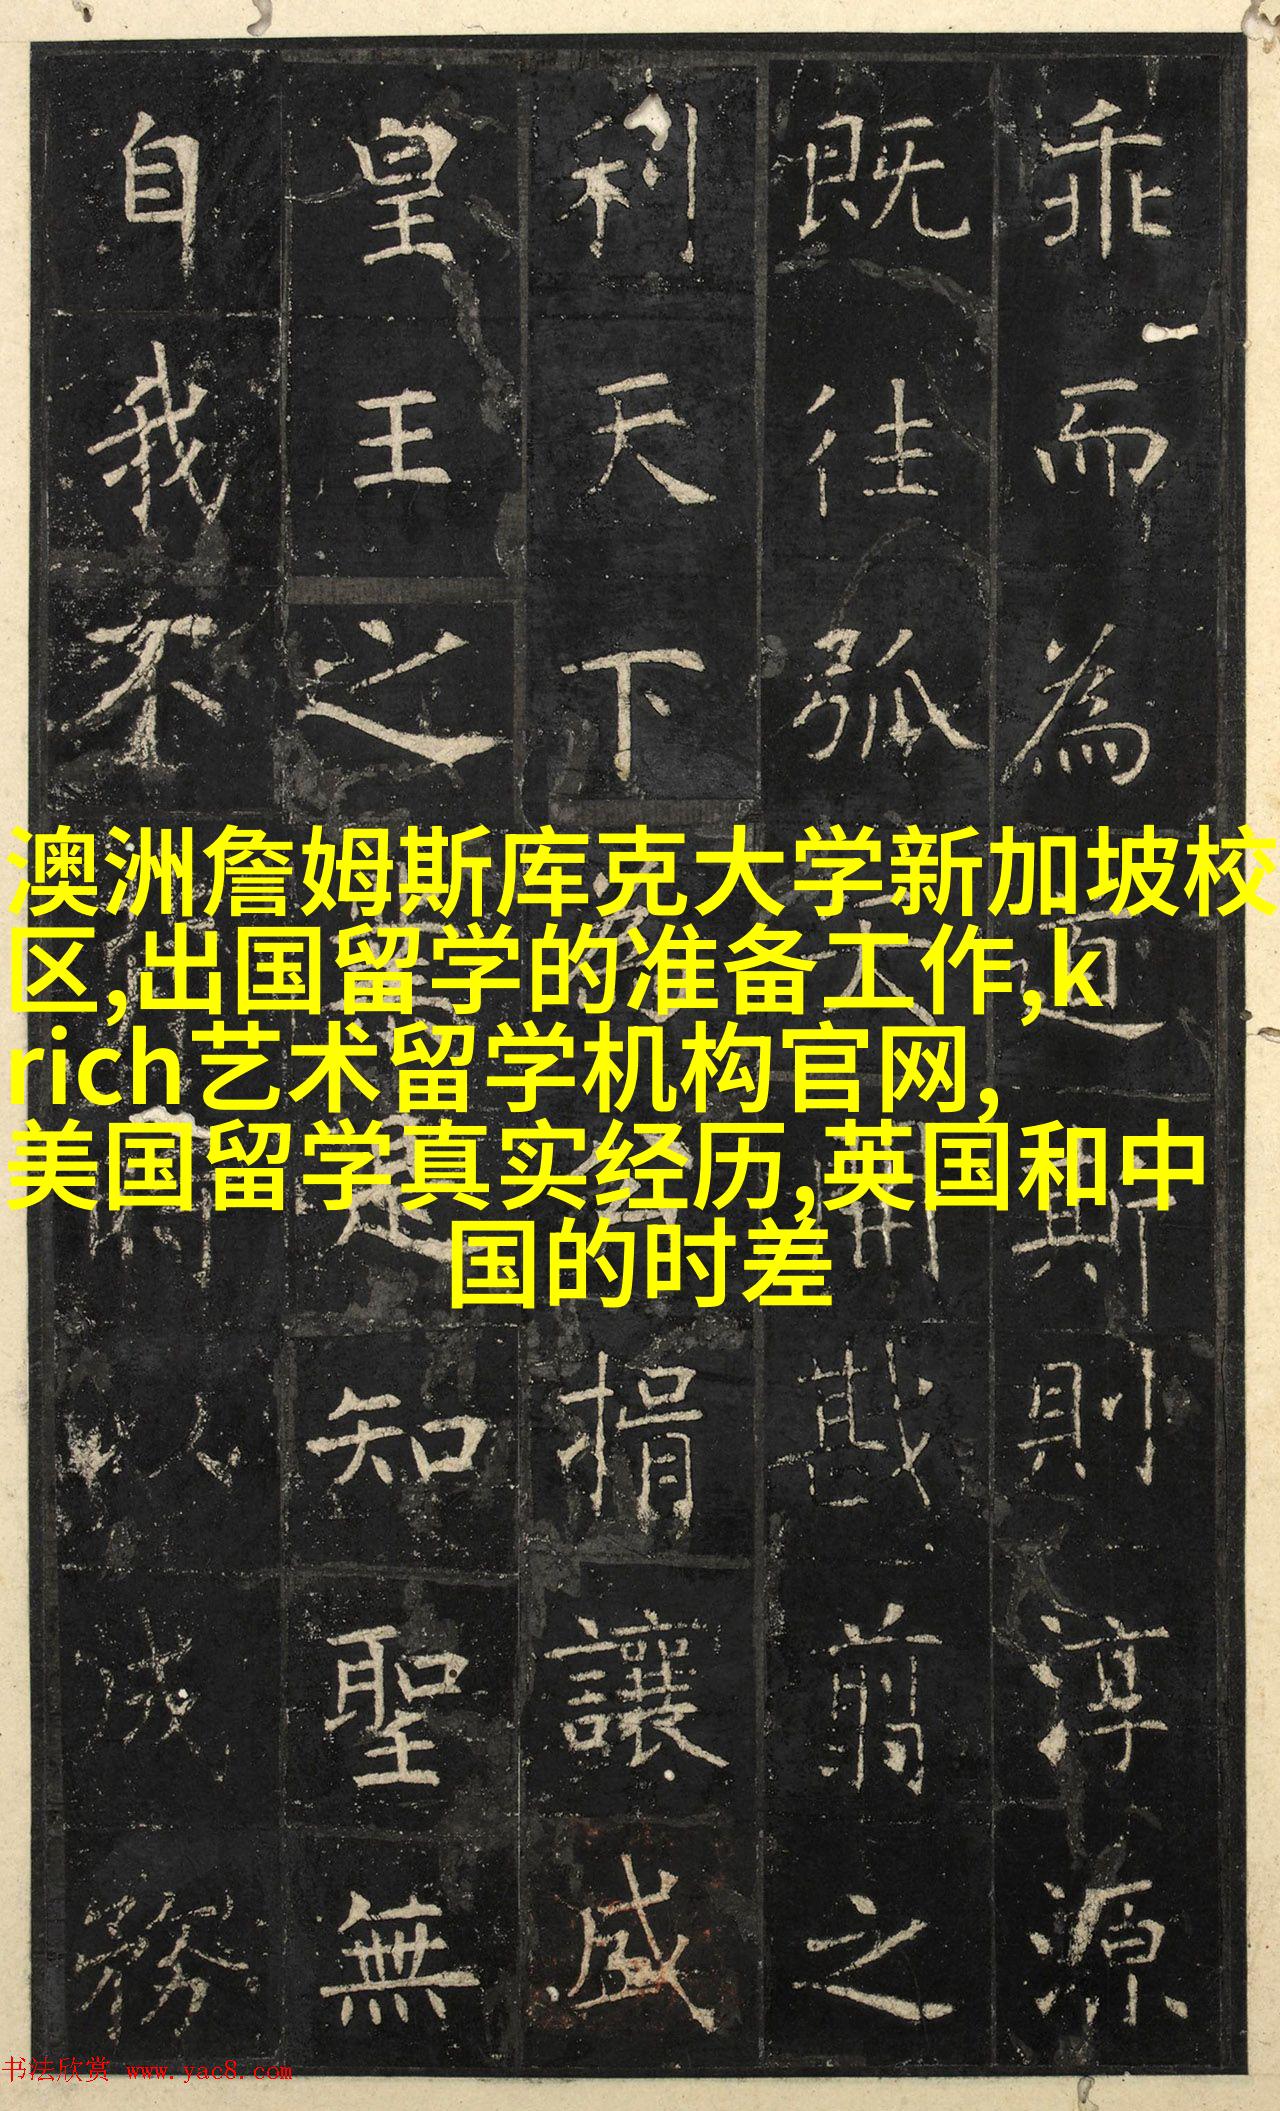 乖而為斯則淳源
既往弧戡翦之
利天下揖讓盛
皇王之是知聖無
自我不以成務
澳洲詹姆斯库克大学新加坡校
区,出国留学的准备工作,k
rich艺术留学机构官网,
美国留学真实经历,英国和中
国的时差
书法欣赏 www.yac8.com